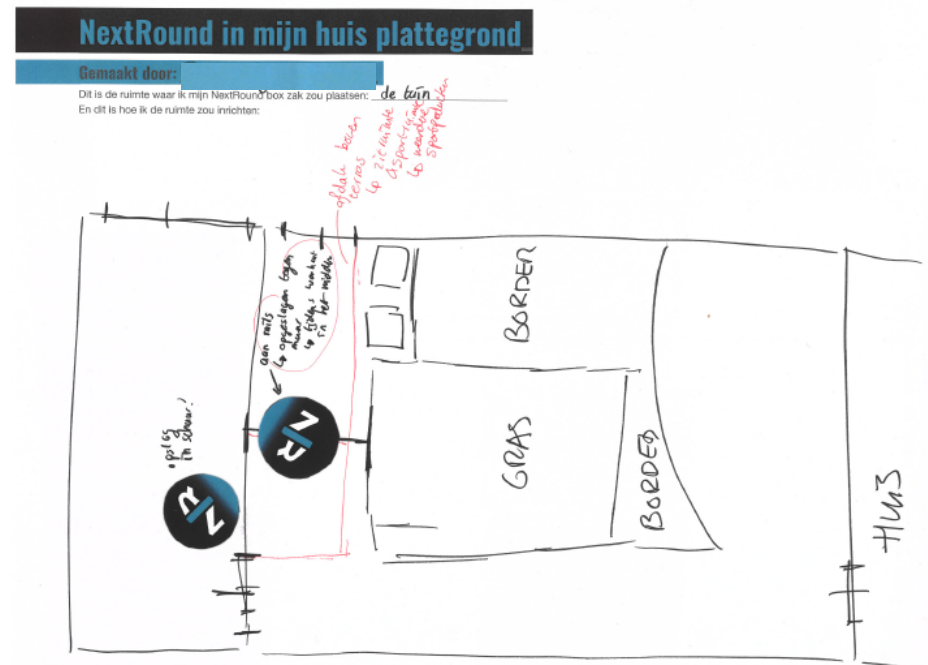 NextRound in mijn huis plattegrond
Gemaakt door:
Dit is de ruimte waar ik mijn NextRound box zak zou plaatsen: de tuin
En dit is hoe ik de ruimte zou inrichten:
afdak boven
terras
↳ zieruimte
& sportruimte
↳ meerdere
sportproducten
aan rails
↳ opgeslagen tegen
muur
↳ tijdens workout
in het midden
opslag
in schuur!
NR
NR
BORDER
GRAS
BORDER
HUIS